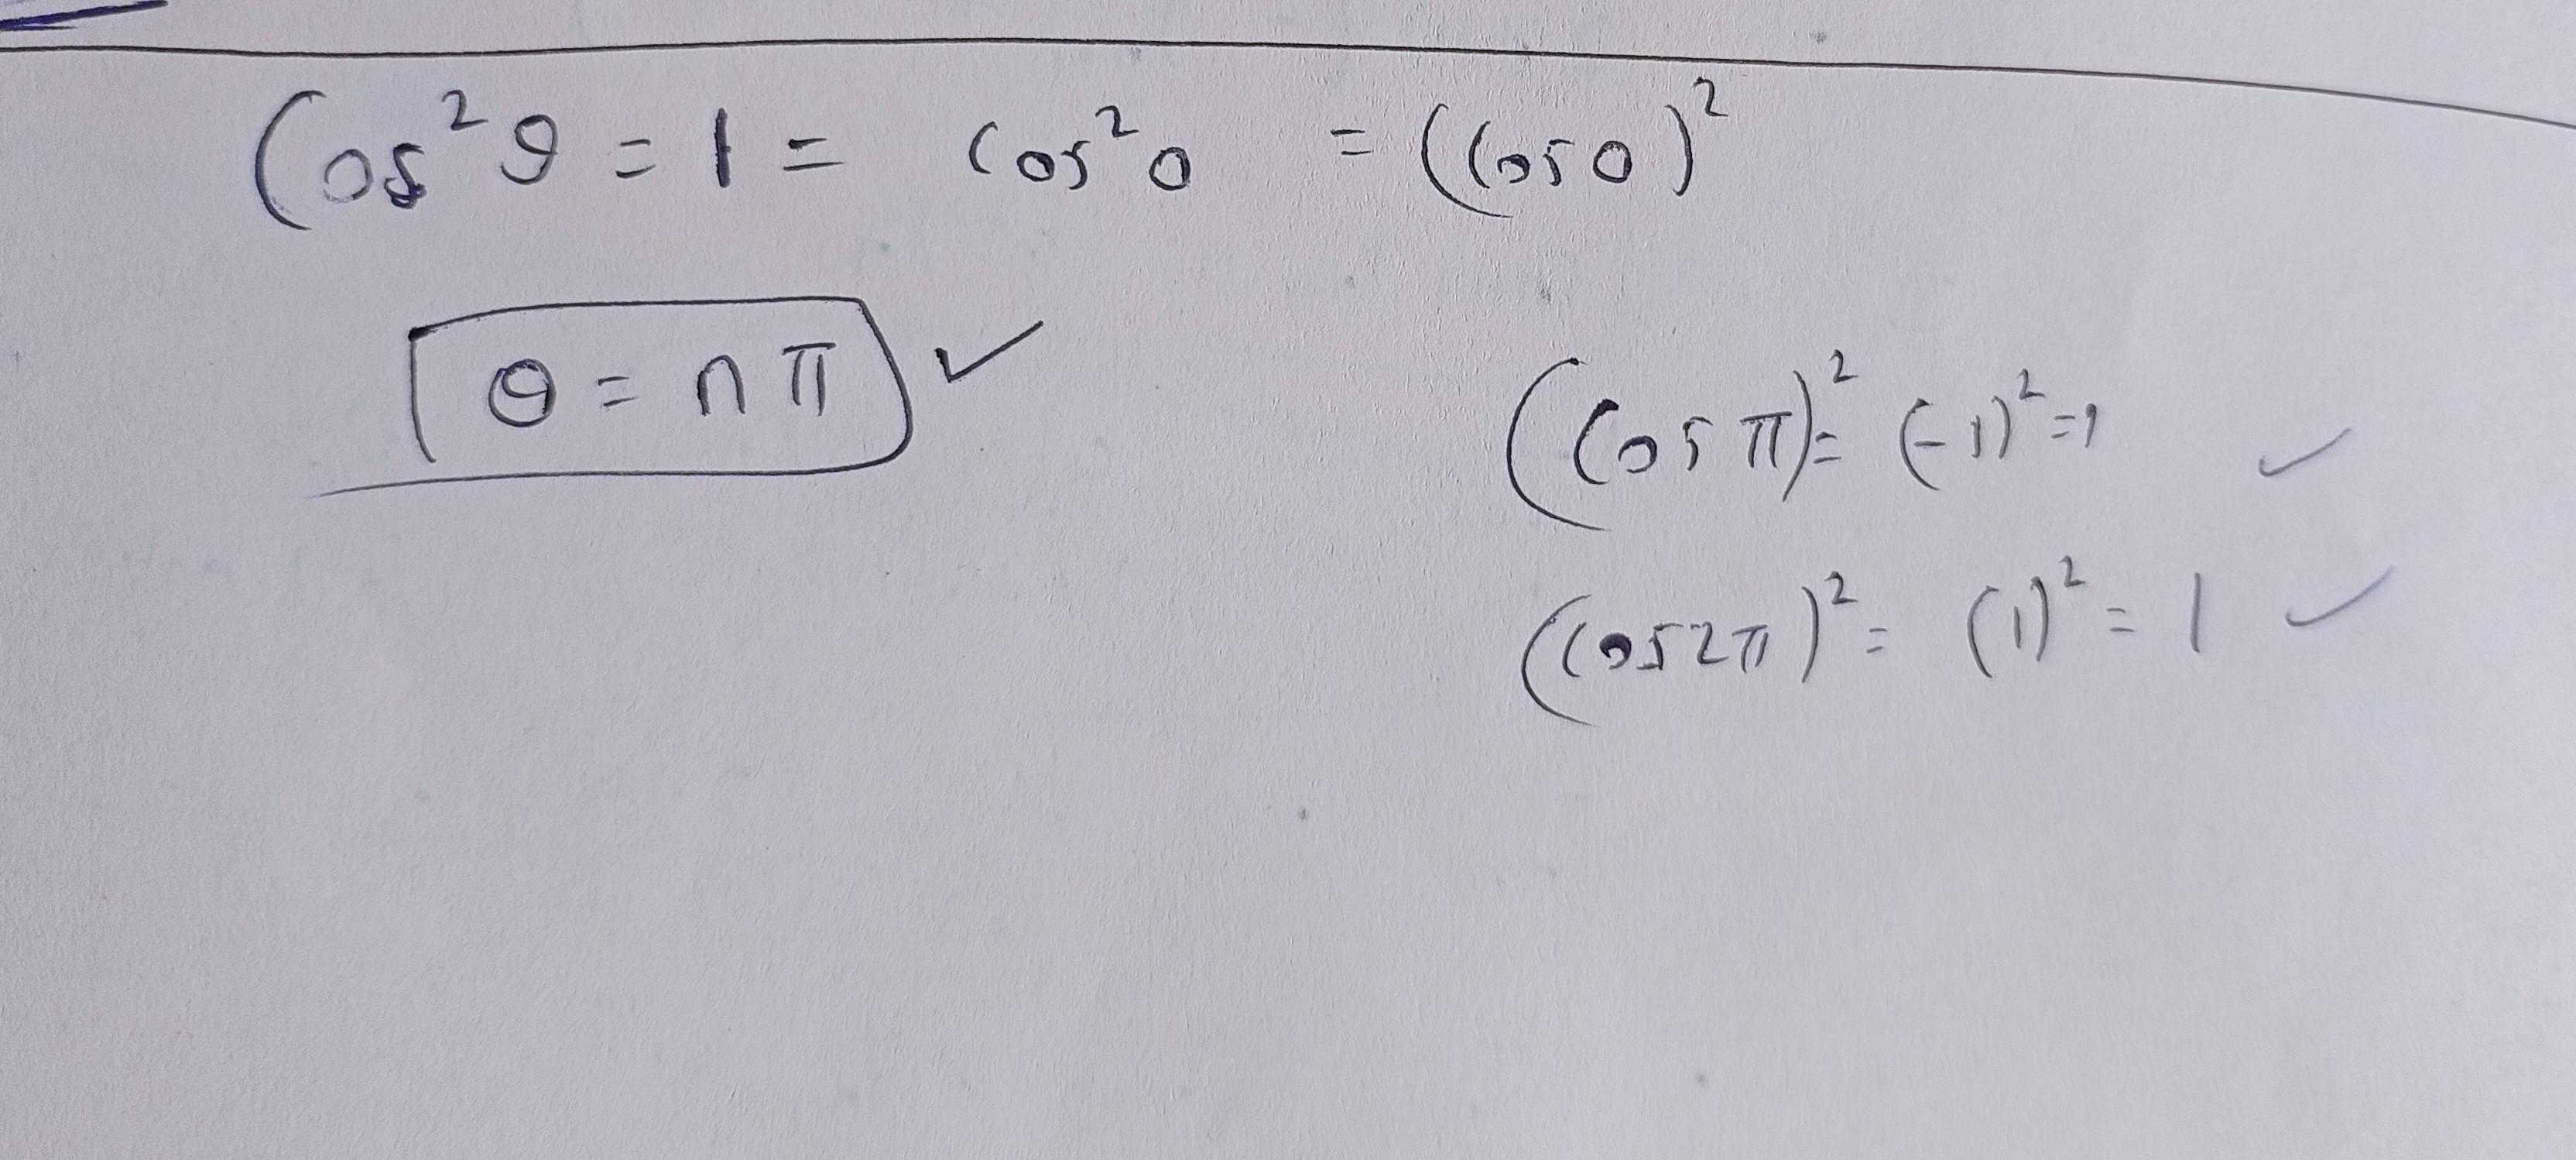 Cos²θ = 1 = Cos²0 = (Cos0)²
θ = nπ ✓
(Cosπ)² = (-1)² = 1 ✓
(Cos2π)² = (1)² = 1 ✓